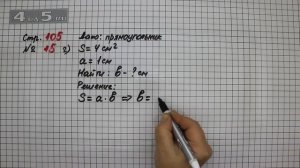 4 5 .ru
Стр. 105 Дано: прямоугольник
№ 15 2) S = 4 см²
a = 1 см
Найти: b - ? см
Решение:
S = a · b ⇒ b =